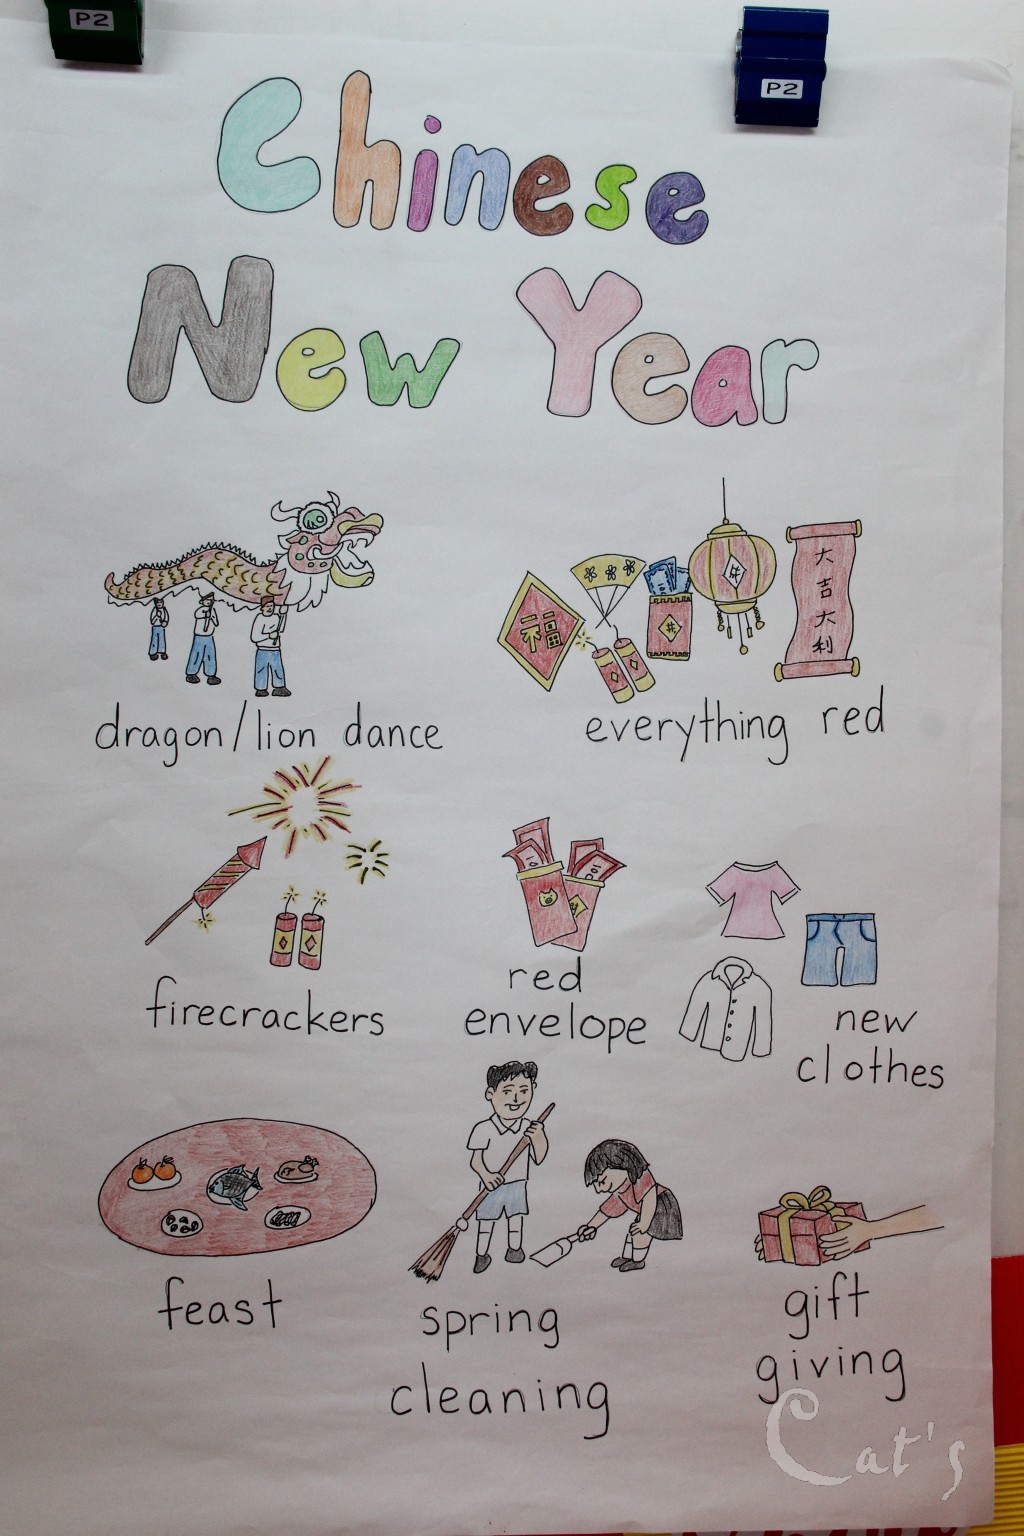 P2
P2
Chinese
New Year
福
大
吉
大
利
dragon/lion dance
everything red
firecrackers
red
envelope
new
clothes
feast
spring
cleaning
gift
giving
Cat's